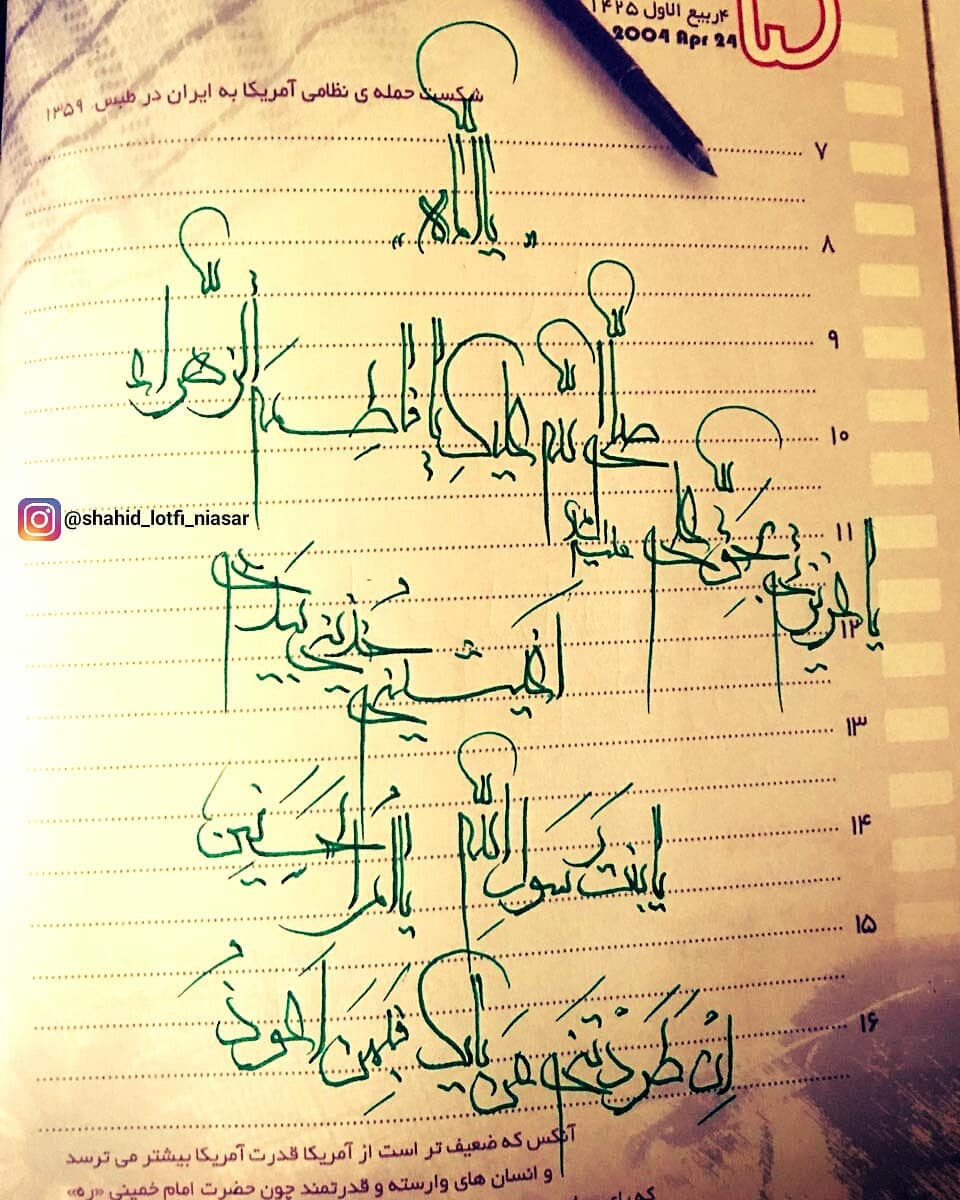 ۴ ربیع الاول ۱۴۲۵
2004 Apr 24
شکست حمله ی نظامی آمریکا به ایران در طبس ۱۳۵۹
۷
"یا الله"
۸
۹
صلی الله علیکِ یا فاطمة الزهراء
۱۰
@shahid_lotfi_niasar
۱۱
یا
۱۲
اغیثینی خذینی بیدی
۱۳
یا بنت رسول الله یا ام الحسین
۱۴
۱۵
إن طردتنی عن بابک فبمن اعوذ
۱۶
آنکس که ضعیف تر است از آمریکا قدرت آمریکا بیشتر می ترسد
و انسان های وارسته و قدرتمند چون حضرت امام خمینی «ره»